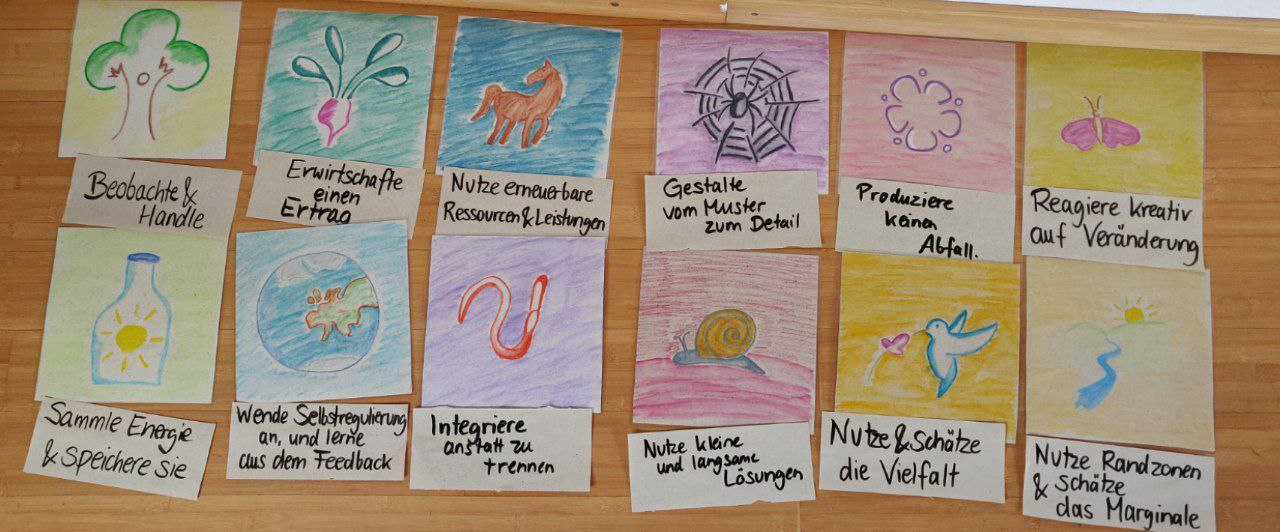 Beobachte &
Handle
Erwirtschafte
einen
Ertrag
Nutze erneuerbare
Ressourcen & Leistungen
Gestalte
vom Muster
zum Detail
Produziere
keinen
Abfall.
Reagiere kreativ
auf Veränderung
Sammle Energie
& speichere sie
Wende Selbstregulierung
an, und lerne
aus dem Feedback
Integriere
anstatt zu
trennen
Nutze kleine
und langsame
Lösungen
Nutze & schätze
die Vielfalt
Nutze Randzonen
& schätze
das Marginale